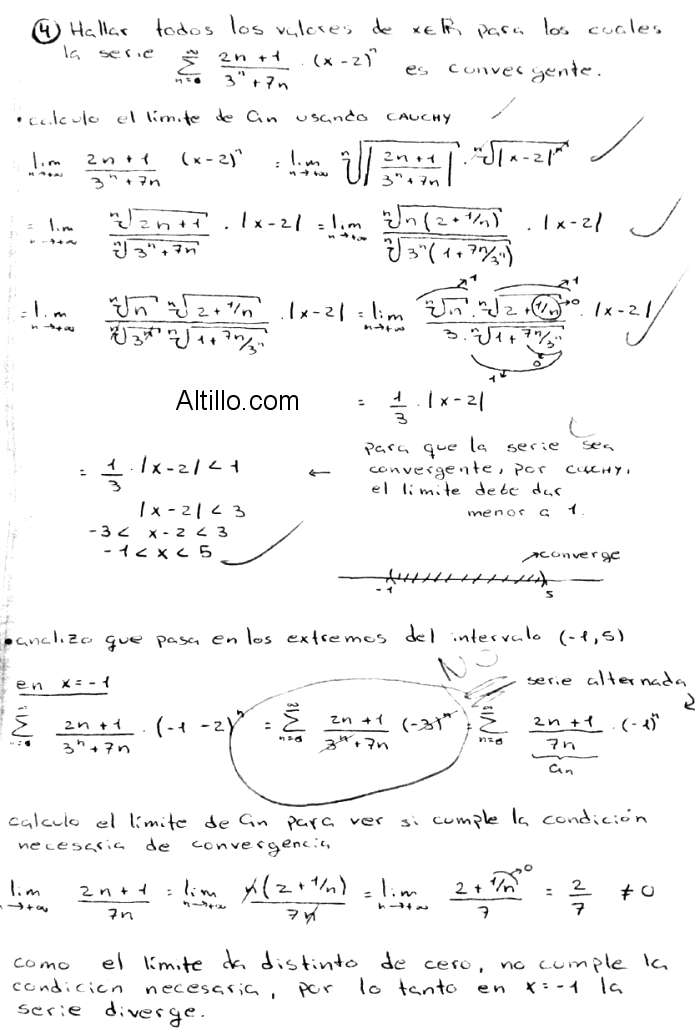 ④ Hallar todos los valores de x∈ℝ para los cuales
la serie ∑_{n=0}^{∞} (2n+1)/(3^n+7n) · (x-2)^n es convergente.
• calculo el límite de an usando CAUCHY
lim_{n→+∞} (2n+1)/(3^n+7n) (x-2)^n = lim_{n→+∞} ⁿ√|(2n+1)/(3^n+7n)| · ⁿ√|x-2|^n
= lim_{n→+∞} ⁿ√(2n+1)/ⁿ√(3^n+7n) · |x-2| = lim_{n→+∞} ⁿ√(n(2+1/n))/ⁿ√(3^n(1+7n/3^n)) · |x-2|
= lim_{n→+∞} (ⁿ√n ⁿ√(2+1/n))/(ⁿ√3^n ⁿ√(1+7n/3^n)) · |x-2| = lim_{n→+∞} (ⁿ√n →1 · ⁿ√(2+1/n →0) →1)/(3 · ⁿ√(1+7n/3^n →0) →1) · |x-2|
Altillo.com
= 1/3 · |x-2|
para que la serie sea
= 1/3 · |x-2| < 1 ← convergente, por CAUCHY,
el límite debe dar
|x-2| < 3 menor a 1.
-3 < x-2 < 3
-1 < x < 5
→converge
-1 5
• analizo que pasa en los extremos del intervalo (-1,5)
NO
en x=-1 serie alternada
∑_{n=0}^{∞} (2n+1)/(3^n+7n) · (-1-2)^n = ∑_{n=0}^{∞} (2n+1)/(3^n+7n) (-3)^n = ∑_{n=0}^{∞} (2n+1)/(7n) · (-1)^n
an
calculo el límite de an para ver si cumple la condición
necesaria de convergencia
lim_{n→+∞} (2n+1)/(7n) = lim_{n→+∞} n(2+1/n)/(7n) = lim_{n→+∞} (2+1/n →0)/7 = 2/7 ≠ 0
como el límite da distinto de cero, no cumple la
condición necesaria, por lo tanto en x=-1 la
serie diverge.